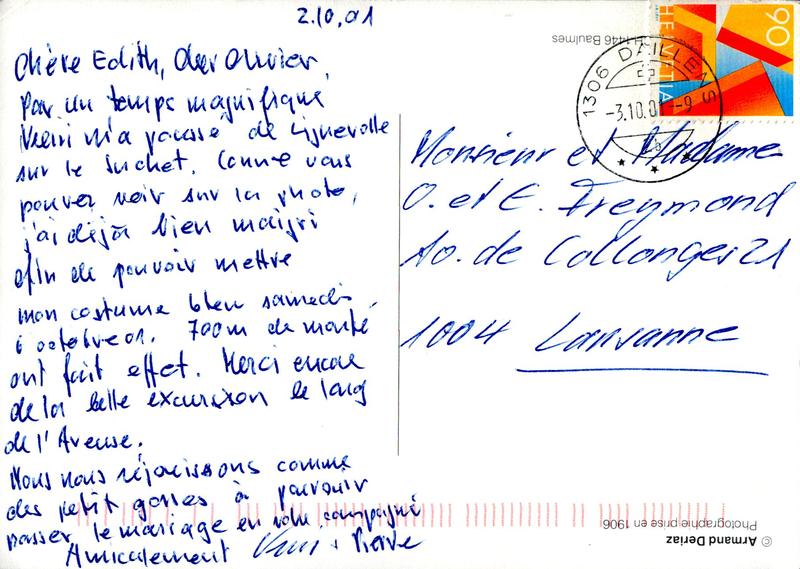 2.10.01
Chère Edith, cher Olivier,
Par un temps magnifique
Vreni m'a poussé de Lignerolle
sur le Suchet. Comme vous
pouvez voir sur la photo,
j'ai déjà bien maigri
afin de pouvoir mettre
mon costume bleu samedi,
6 octobre 01. 700m de monté
ont fait effet. Merci encore
de la belle excursion le long
de l'Areuse.
Nous nous réjouissons comme
des petit gosses à pouvoir
passer le mariage en votre compagni
Amicalement Vreni + Pierre
H-1446 Baulmes
HELVETIA
90
1306 DAILLENS
-3.10.01--9
Monsieur et Madame
O. et E. Freymond
Av. de Collonges 21
1004 Lausanne
© Armand Deriaz
Photographie prise en 1906